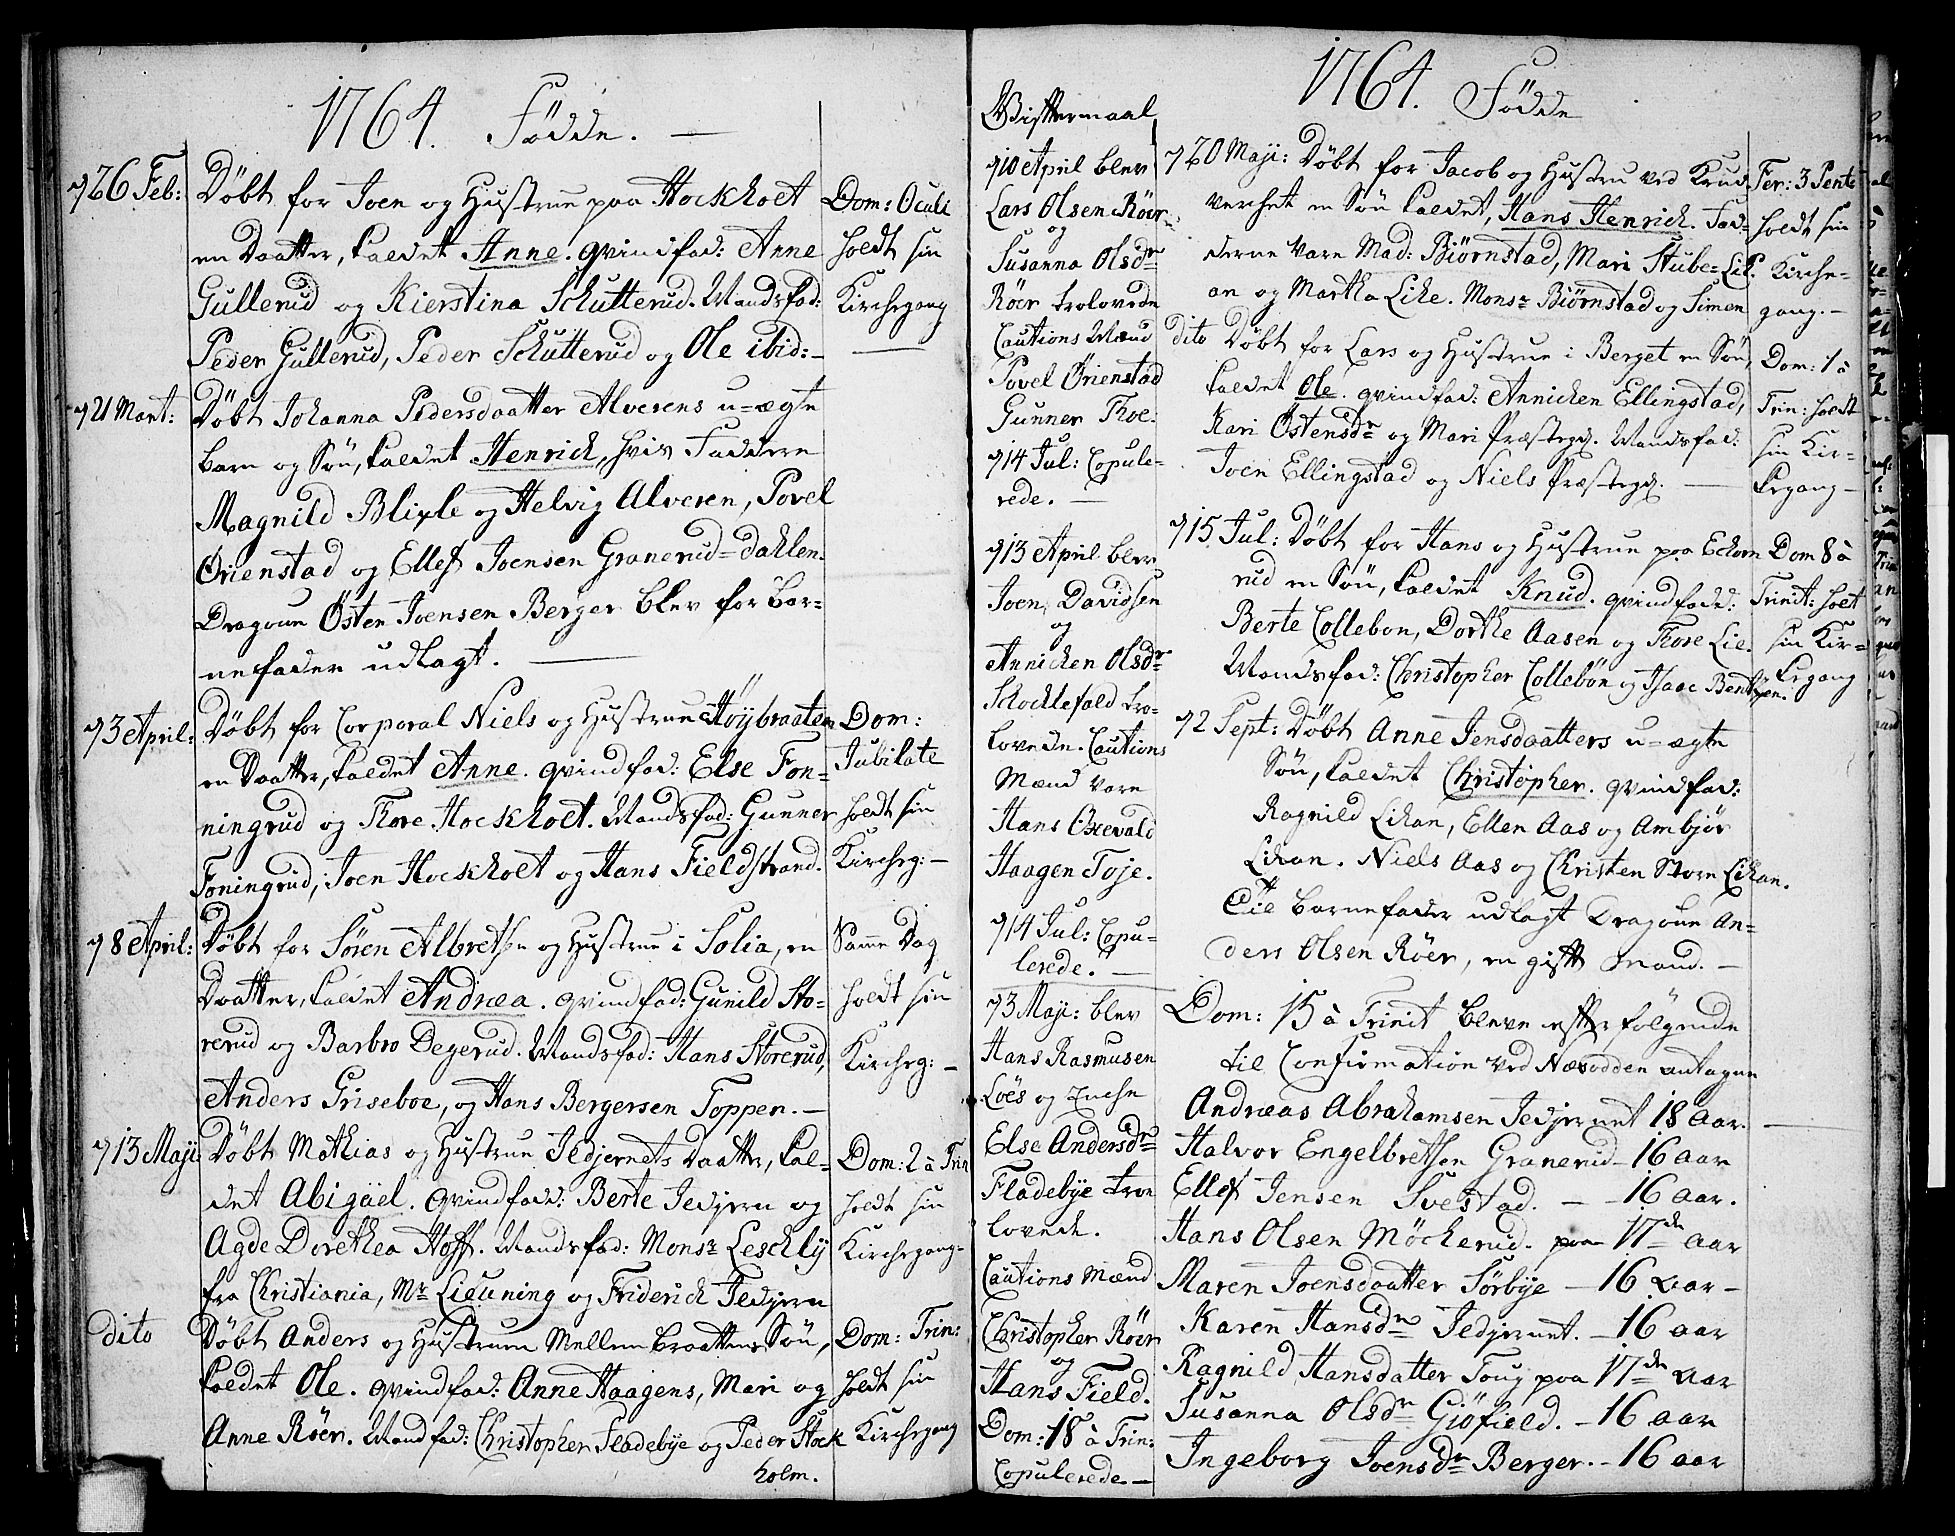 1764. Födde. —
26 Feb: Döbt for Joen og Hustrue paa Hockholt
en Daatter, kaldet Anne. qvindfad: Anne
Gullerud og Kierstina Schutterud. Mandsfad:
Peder Gullerud, Peder Schutterud og Ole ibid: —
Dom: Oculi
holdt sin
Kirchegang
21 Mart: Döbt Johanna Pedersdaatter Alverens u-ægte
barn og Sön, kaldet Henrich, hvis Faddere
Magnild Blixle og Helvig Alveren, Povel
Örienstad og Ellef Joensen Granerud-dahlen.
Dragoun Östen Joensen Berger blev for bar-
nefader udlagt. —
3 April: Döbt for Corporal Niels og Hustrue Höybraaten
en Daatter, kaldet Anne. qvindfad: Else Fon-
ningrud og Thore Hockholt. Mandsfad: Gunner
Foningrud, Joen Hockholt og Hans Fieldstrand.
Dom:
Jubilate
holdt sin
Kircheg: —
8 April: Döbt for Sören Albretsn og Hustrue i Solia, en
Daatter, kaldet Andrea. qvindfad: Gunild Sto-
rerud og Barbro Degerud. Mandsfad: Hans Storerud,
Anders Griseboe, og Hans Bergersen Toppen. —
Samme Dag
holdt sin
Kircheg: —
13 Maji Döbt Mathias og Hustrue Jedjernets Daatter, kal-
det Abigäel. qvindfadd: Berte Jedjern og
Agde Dorethea Hoff. Mandsfad: Monsr Leschly
fra Christiania, Mr Lieuning og Friderich Jedjern
Dom: 2 à Trin
holdt sin
Kirchegang-
dito Döbt Anders og Hustruen Mellem braattens Sön,
kaldet Ole. qvindfad: Anne Haagens, Mari og
Anne Röer. Mandfad: Christopher Fladebye og Peder Stock
holm.
Dom: Trin:
holdt sin
Kirchegang
Gifttermaal
10 April blev
Lars Olsen Röer
og
Susanna Olsdr
Röer trolovede
Cautions Mænd
Povel Örienstad
Gunner Thoe.
14 Jul: Copule-
rede. —
13 April blev
Joen Davidsen
og
Annichen Olsdr
Schocklefald tro-
lovede. Cautions
Mænd vare
Hans Oxevald
Haagen Toje.
14 Jul: Copu-
lerede. —
3 Maji: blev
Hans Rasmusen
Löes og Enche
Else Andersdr
Fladebye tro
lovede.
Cautions Mænd
Christopher Röer
og
Hans Field.
Dom: 18 à Trin:
Copulerede —
1764. Födde
20 Maji: Döbt for Jacob og Hustru ved Krud-
verchet en Sön kaldet, Hans Henrich. Fad-
derne vare Mad: Biörnstad, Mari Stube-
an og Martha Lihe. Monsr Biörnstad og Simen
Fer: 3 Pente
holdt sin
Kirche-
gang. —
dito Döbt for Lars og Hustrue i Berget en Sön,
kaldet Ole. qvindfad: Annichen Ellingstad,
Kari Östensdr og Mari Præstegd. Mandsfad:
Joen Ellingstad og Niels Præstegd. —
Dom: 1 à
Trin: holdt
sin Kir-
kegang —
15 Jul: Döbt for Hans og Hustrue paa Echorn
rud en Sön, kaldet Knud. qvindfadd:
Berte Collebon, Dorthe Aasen og Thore Lie.
Mandsfad: Christopher Collebön og Isaac Bentsen.
Dom 8 à
Trinit: holt
sin Kir-
kegang
2 Sept: Döbt Anne Jensdaatters u-ægte
Sön, kaldet Christopher. qvindfad:
Ragnild Lihan, Ellen Aas og Ambjör
Lihan. Niels Aas og Christen Storn Lihan.
Til barnefader udlagt Dragoun An-
ders Olsen Röer, en gift Mand. —
Dom: 15 à Trinit bleve efterfölgende
til Confirmation ved Næsodden antagne
Andreas Abrahamsen Jedjernet 18 Aar. —
Halvor Engelbretsen Granerud — 16 aar
Ellef Jensen Svestad. — 16 aar.
Hans Olsen Möckerud. paa 17de aar
Maren Joensdaatter Sörbye — 16 aar —
Karen Hansdr Jedjernet. — 16 aar
Ragnild Hansdatter Toug paa 17de aar
Susanna Olsdr Giöfield. — 16 aar
Ingeborg Joensdr Berger. — 16 aar